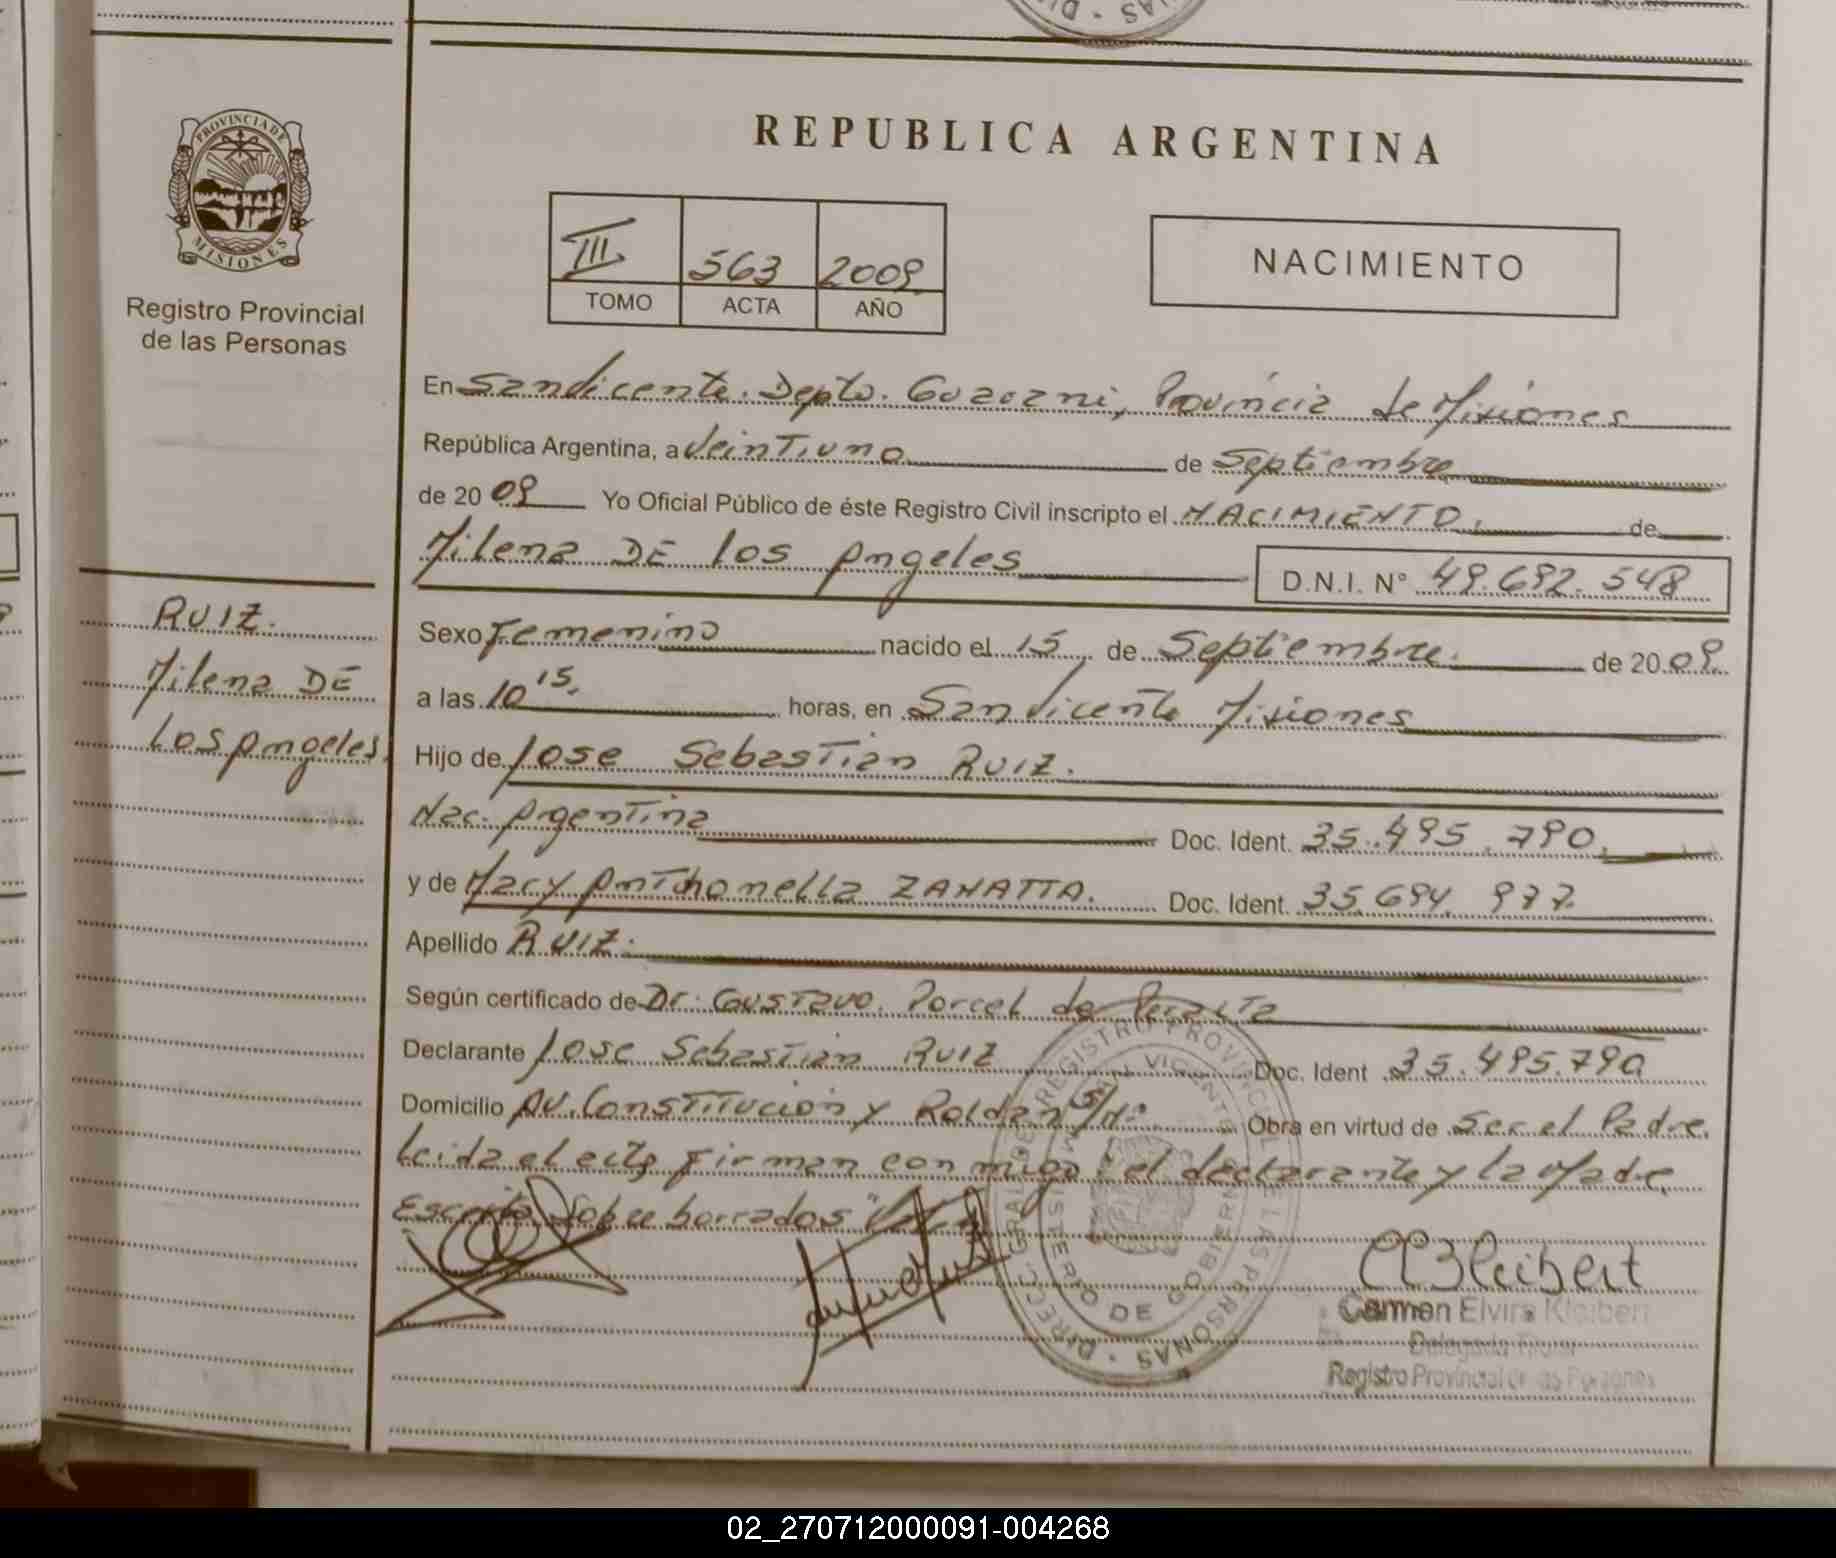 REPUBLICA ARGENTINA
PROVINCIA DE
MISIONES
Registro Provincial
de las Personas
III 563 2009
TOMO ACTA AÑO
NACIMIENTO
En San Vicente. Depto. Guarani, Provincia de Misiones
República Argentina, a Veintiuno de Septiembre
de 2009 Yo Oficial Público de éste Registro Civil inscripto el NACIMIENTO. de
Milena DE los Angeles
D.N.I. N° 49.692.548
RUIZ.
Milena DE
Los Angeles
Sexo Femenino nacido el 15 de Septiembre. de 2009.
a las 10 15. horas, en San Vicente Misiones
Hijo de Jose Sebastian RUIZ.
Nac. Argentina Doc. Ident. 35.495.790.
y de Mary Anthonella ZANATTA. Doc. Ident. 35.694.977.
Apellido RUIZ.
Según certificado de Dr. Gustavo. Porcel de Peralta
Declarante Jose Sebastian RUIZ Doc. Ident 35.495.790
Domicilio AV. Constitucion y Roldan S/Nº. Obra en virtud de Ser el Padre.
Leida el acta Firman con migo: el declarante y la Madre.
Escrito Sobre borrados
CE Kleibert
Carmen Elvira Kleibert
Delegada Titular
Registro Provincial de las Personas
02_270712000091-004268